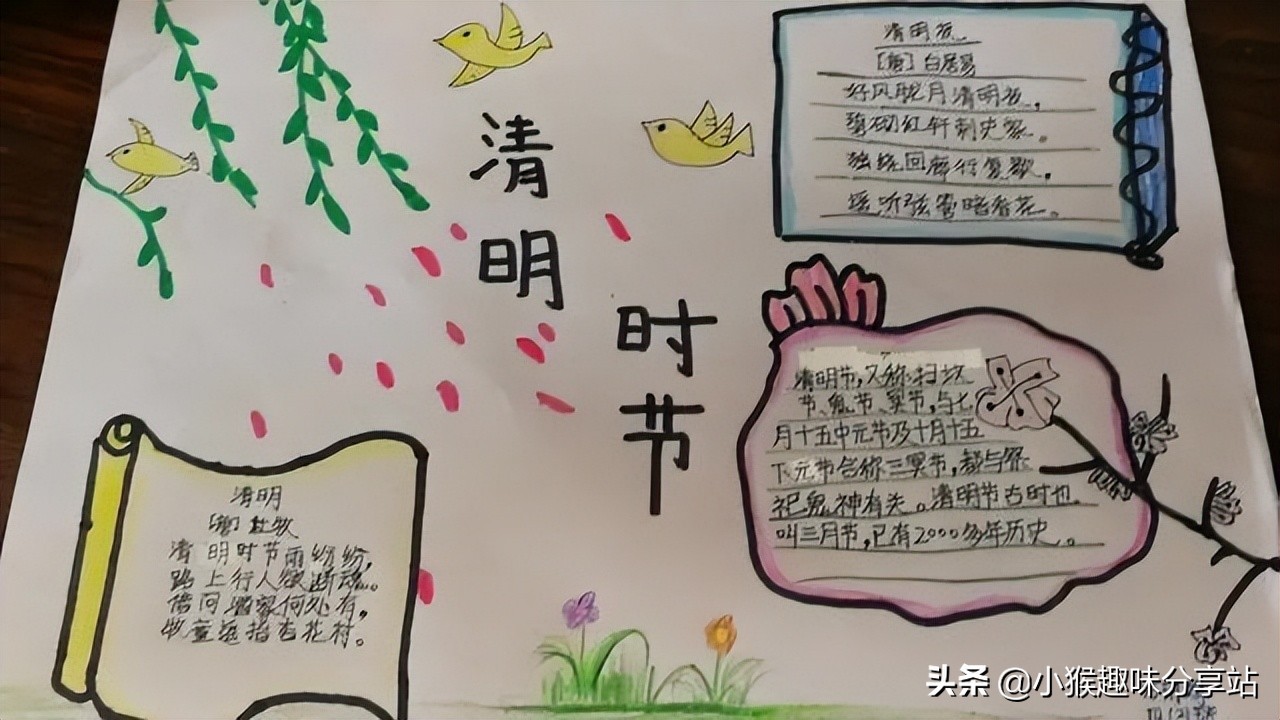 清明
时节
清明夜
[唐] 白居易
好风胧月清明夜，
碧砌红轩刺史家。
独绕回廊行复歇，
遥听弦管暗看花。
清明节，又称扫坟
节、鬼节、冥节，与七
月十五中元节及十月十五
下元节合称三冥节，都与祭
祀鬼神有关。清明节古时也
叫三月节，已有2000多年历史。
清明
[唐] 杜牧
清明时节雨纷纷，
路上行人欲断魂。
借问酒家何处有，
牧童遥指杏花村。
头条 @小猴趣味分享站